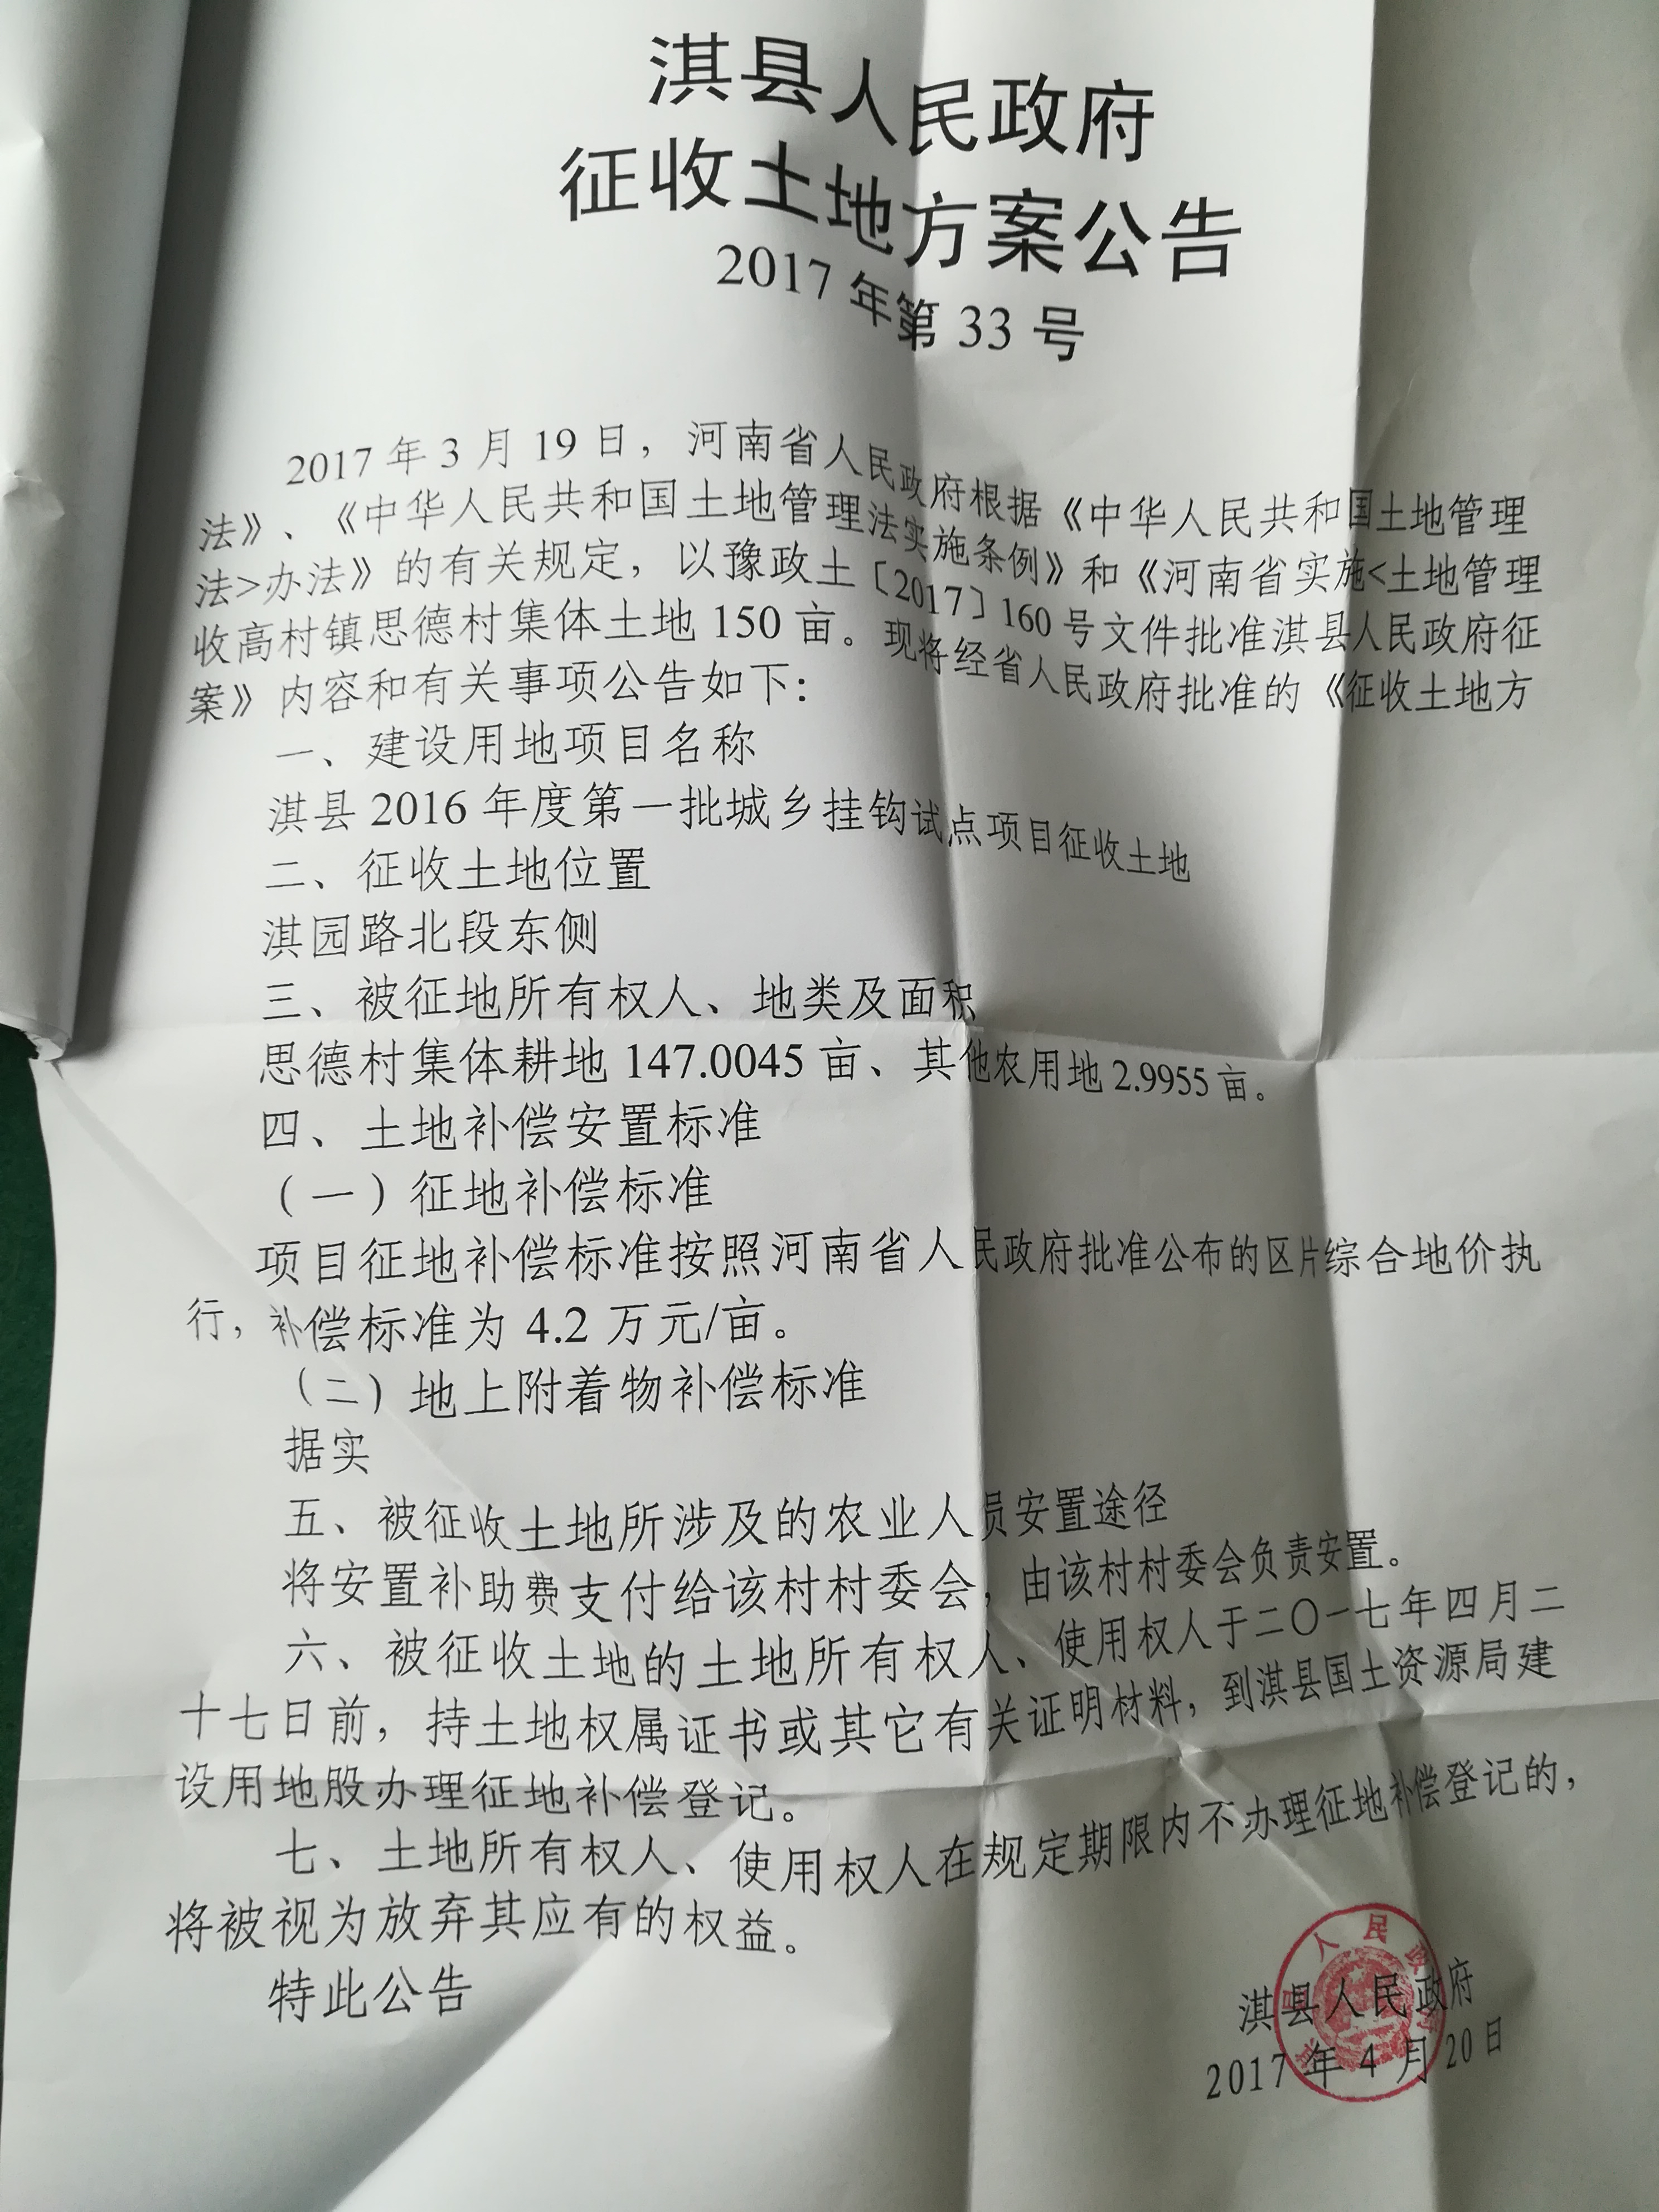 淇县人民政府
征收土地方案公告
2017 年第 33 号
2017 年 3 月 19 日，河南省人民政府根据《中华人民共和国土地管理
法》、《中华人民共和国土地管理法实施条例》和《河南省实施<土地管理
法>办法》的有关规定，以豫政土〔2017〕160 号文件批准淇县人民政府征
收高村镇思德村集体土地 150 亩。现将经省人民政府批准的《征收土地方
案》内容和有关事项公告如下：
一、建设用地项目名称
淇县 2016 年度第一批城乡挂钩试点项目征收土地
二、征收土地位置
淇园路北段东侧
三、被征地所有权人、地类及面积
思德村集体耕地 147.0045 亩、其他农用地 2.9955 亩。
四、土地补偿安置标准
（一）征地补偿标准
项目征地补偿标准按照河南省人民政府批准公布的区片综合地价执
行，补偿标准为 4.2 万元/亩。
（二）地上附着物补偿标准
据实
五、被征收土地所涉及的农业人员安置途径
将安置补助费支付给该村村委会，由该村村委会负责安置。
六、被征收土地的土地所有权人、使用权人于二〇一七年四月二
十七日前，持土地权属证书或其它有关证明材料，到淇县国土资源局建
设用地股办理征地补偿登记。
七、土地所有权人、使用权人在规定期限内不办理征地补偿登记的，
将被视为放弃其应有的权益。
特此公告
淇县人民政府
2017 年 4 月 20 日